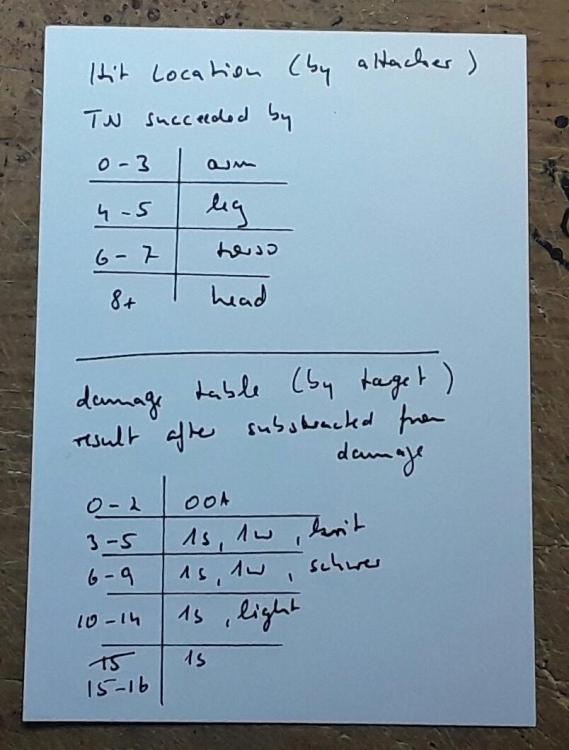 Hit Location (by attacker)
TN succeeded by
0-3 arm
4-5 leg
6-7 torso
8+ head
damage table (by target)
result after substracted from
damage
0-2 OOA
3-5 1s, 1w, krit
6-9 1s, 1w, schwer
10-14 1s, light
15 1s
15-16